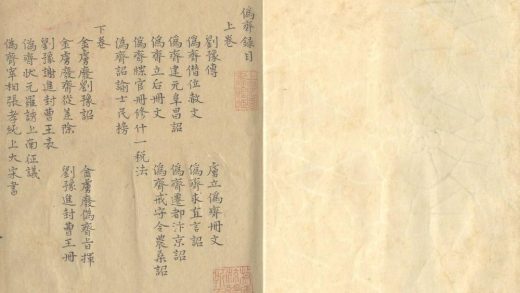 偽齊錄目
上卷
劉豫傳　虜立偽齊冊文
偽齊僭位赦文　偽齊求直言詔
偽齊建元阜昌詔　偽齊遷都汴京詔
偽齊立后冊文　偽齊戒守令農桑詔
偽齊牒官冊修什一稅法
偽齊詔諭士民榜
下卷
金虜廢劉豫詔　金虜廢偽齊旨揮
金虜廢齊從差除　劉豫進封曹王冊
劉豫謝進封曹王表
偽齊狀元羅誘上南征議
偽齊宰相張孝純上大宋書